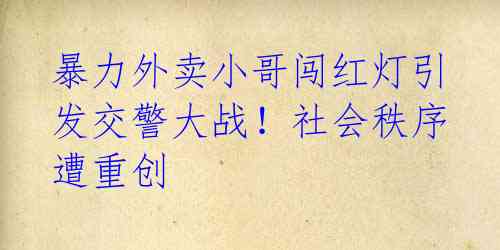 暴力外卖小哥闯红灯引
发交警大战！社会秩序
遭重创